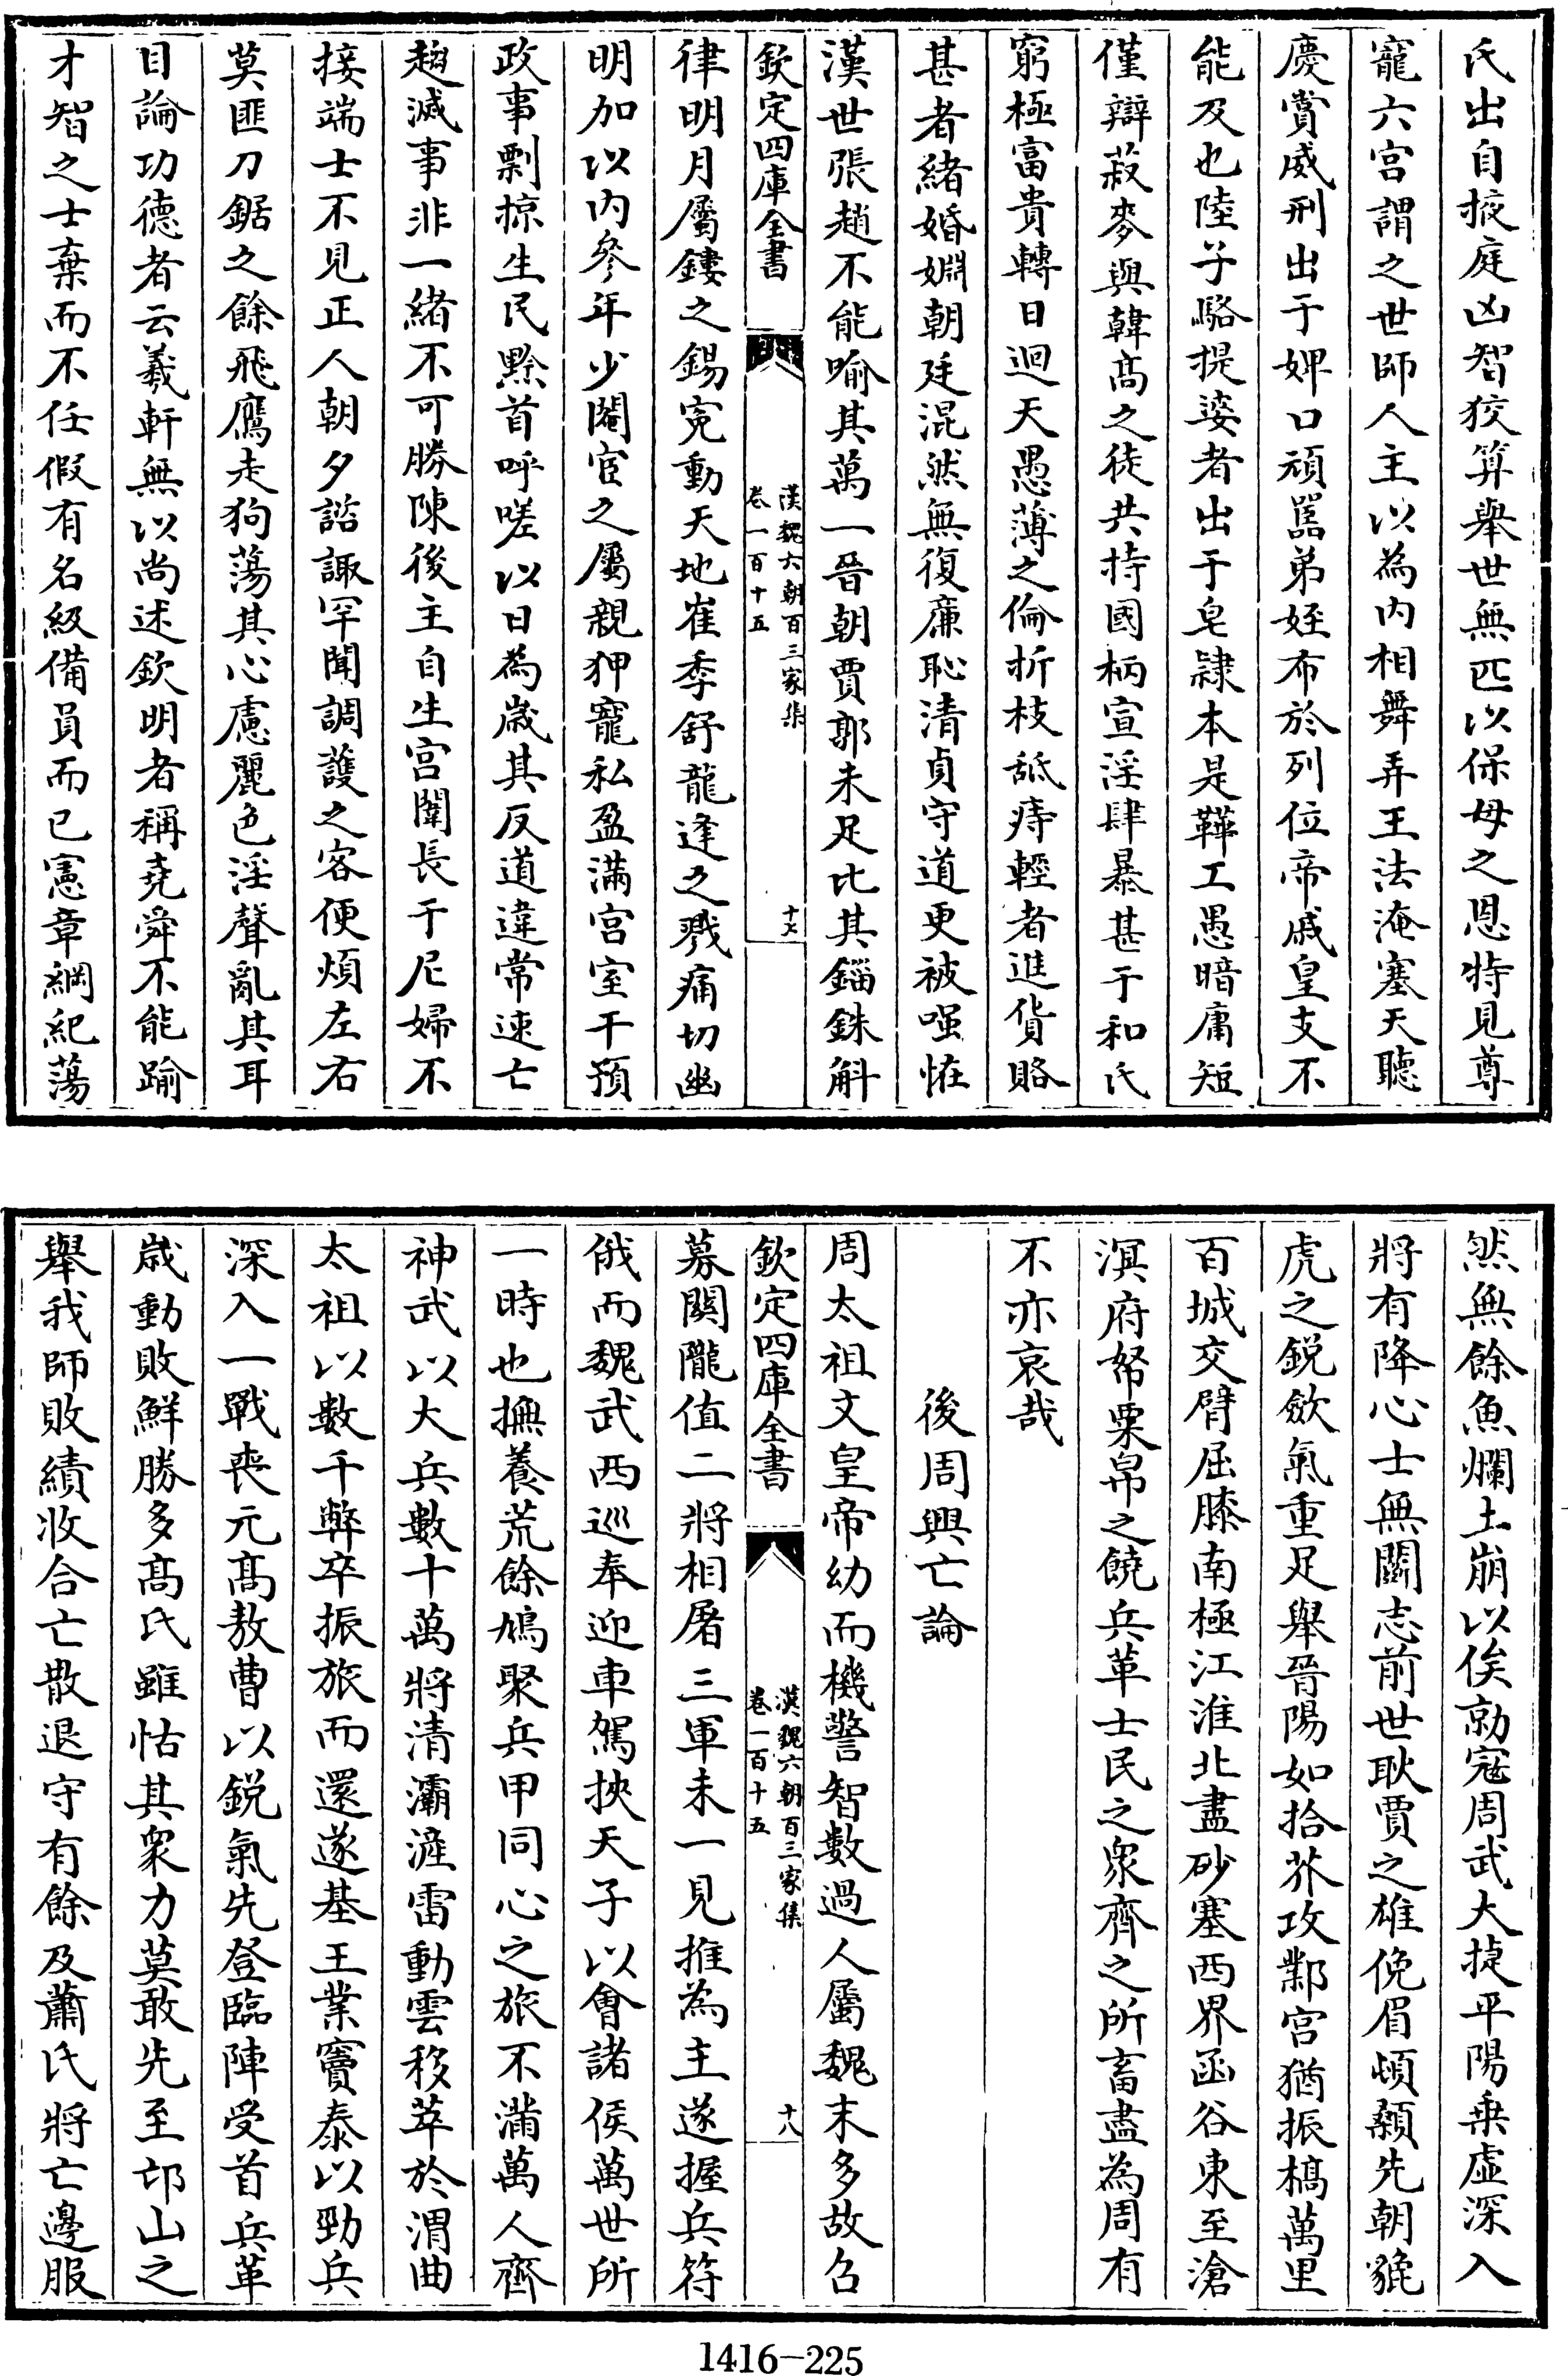 氏出自掖庭凶智狡算舉世無匹以保母之恩特見尊
寵六宫謂之世師人主以為内相舞弄王法淹塞天聽
慶賞威刑出于婢口頑嚚弟姪布於列位帝戚皇支不
能及也陸子駱提婆者出于皂隸本是鞾工愚暗庸短
僅辯菽麥與韓髙之徒共持國柄宣淫肆暴甚于和氏
窮極富貴轉日迴天愚薄之倫折枝舐痔輕者進貨賂
甚者緒婚婣朝廷混然無復廉恥清貞守道更被嗤恠
漢世張趙不能喻其萬一晉朝賈郭未足比其錙銖斛
欽定四庫全書
漢魏六朝百三家集
卷一百十五
十七
律明月屬鏤之錫寃動天地崔季舒龍逢之戮痛切幽
明加以内參年少閹宦之屬親狎寵私盈滿宫室干預
政事剽掠生民黔首呼嗟以日為歳其反道違常速亡
趨滅事非一緒不可勝陳後主自生宫闈長于尼婦不
接端士不見正人朝夕諮諏罕聞調護之客便煩左右
莫匪刀鋸之餘飛鷹走狗蕩其心慮麗色淫聲亂其耳
目論功德者云羲軒無以尚述欽明者稱堯舜不能踰
才智之士棄而不任假有名級備員而已憲章綱紀蕩
然無餘魚爛土崩以俟勍寇周武大捷平陽乗虛深入
將有降心士無鬭志前世耿賈之雄俛眉頓顙先朝貔
虎之鋭歛氣重足舉晉陽如拾芥攻鄴宫猶振槁萬里
百城交臂屈膝南極江淮北盡砂塞西界函谷東至滄
溟府帑粟帛之饒兵革士民之衆齊之所畜盡為周有
不亦哀哉
後周興亡論
周太祖文皇帝幼而機警智數過人屬魏末多故召
欽定四庫全書
漢魏六朝百三家集
卷一百十五
十八
募關隴值二將相屠三軍未一見推為主遂握兵符
俄而魏武西巡奉迎車駕挾天子以㑹諸侯萬世所
一時也撫養荒餘鳩聚兵甲同心之旅不滿萬人齊
神武以大兵數十萬將清灞滻雷動雲移萃於渭曲
太祖以數千弊卒振旅而還遂基王業竇泰以勁兵
深入一戰丧元髙敖曹以鋭氣先登臨陣受首兵革
歳動敗鮮勝多髙氏雖怙其衆力莫敢先至邙山之
舉我師敗績收合亡散退守有餘及蕭氏將亡邊服
1416—225